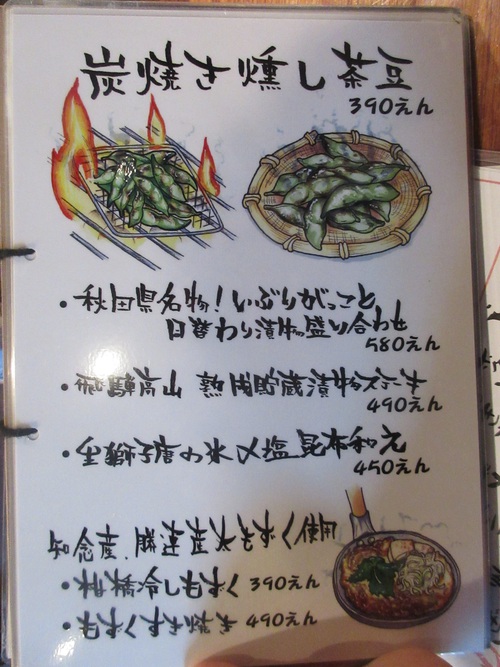 炭焼き燻し茶豆
390えん
・秋田県名物！いぶりがっこと
日替わり漬物盛り合わせ
580えん
・飛騨高山 熟成貯蔵漬物ステーキ
490えん
獅子唐の氷〆塩昆布和え
450えん
知念産、勝連産太もずく使用
・柑橘冷しもずく 390えん
・もずくすき焼き 490えん